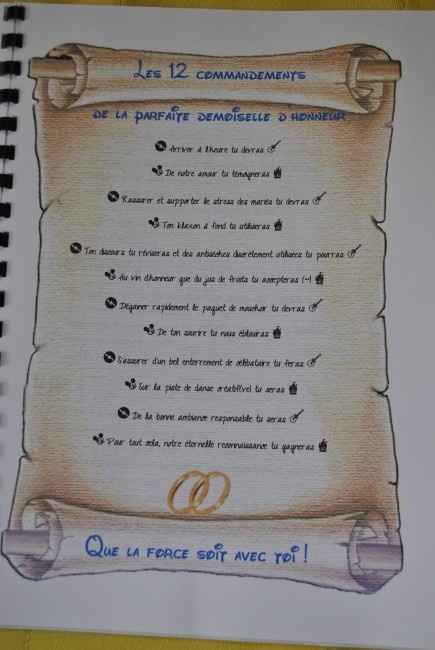 Les 12 commandements
de la parfaite demoiselle d'honneur
Arriver à l'heure tu devras
De notre amour tu témoigneras
Rassurer et supporter le stress des mariés tu devras
Ton klaxon à fond tu utiliseras
Ton discours tu réviseras et des antisèches discrètement utilisées tu pourras
Au vin d'honneur que du jus de fruits tu accepteras (-)
Dégainer rapidement le paquet de mouchoir tu devras
De ton sourire tu nous éblouiras
S'assurer d'un bel enterrement de célibataire tu feras
Sur la piste de danse créatif/vel tu seras
De la bonne ambiance responsable tu seras
Pour tout cela, notre éternelle reconnaissance tu gagneras
Que la force soit avec toi !